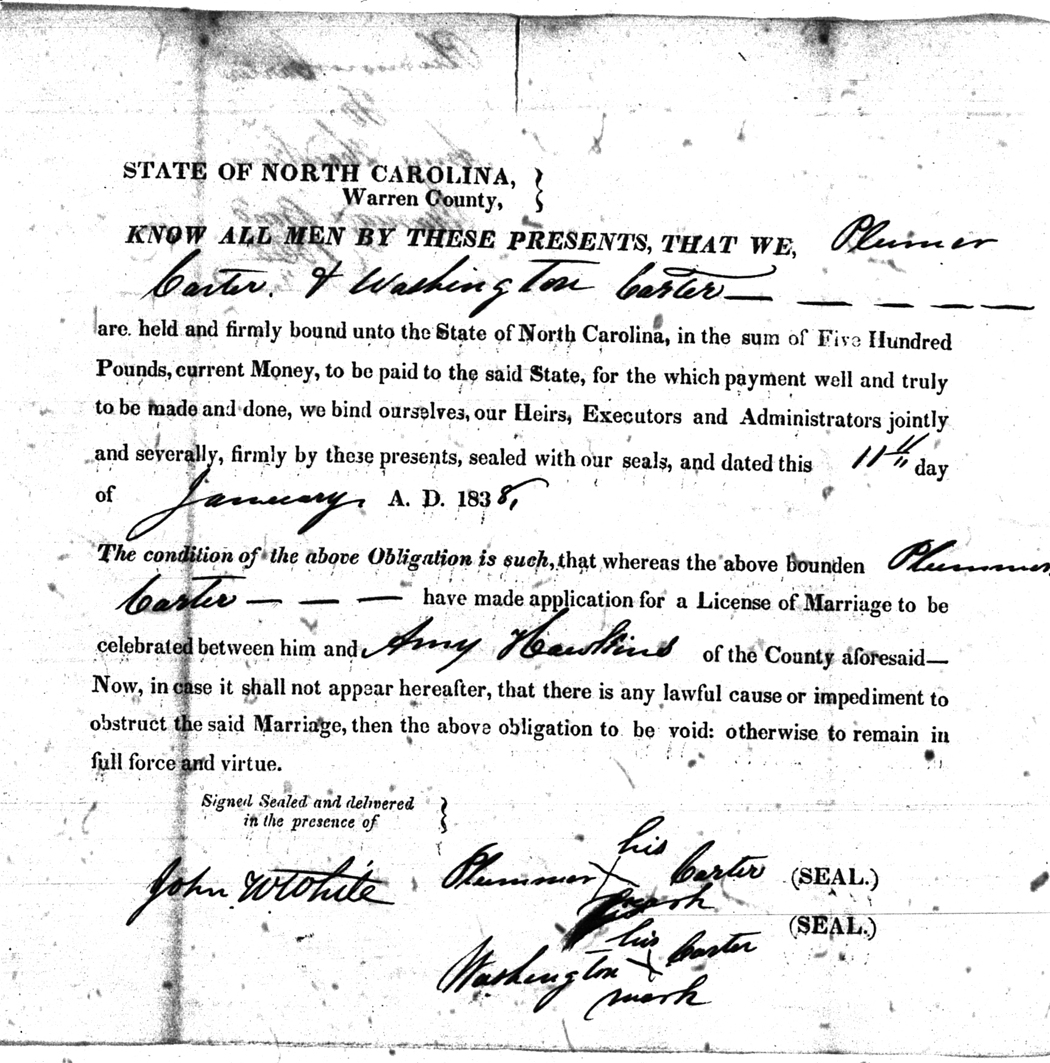 STATE OF NORTH CAROLINA,
Warren County,
KNOW ALL MEN BY THESE PRESENTS, THAT WE, Plumer
Carter. & Washington Carter — — — — —
are held and firmly bound unto the State of North Carolina, in the sum of Five Hundred
Pounds, current Money, to be paid to the said State, for the which payment well and truly
to be made and done, we bind ourselves, our Heirs, Executors and Administrators jointly
and severally, firmly by these presents, sealed with our seals, and dated this 11th day
of January, A. D. 1838,
The condition of the above Obligation is such, that whereas the above bounden Plummer
Carter — — — have made application for a License of Marriage to be
celebrated between him and Amy Hawkins of the County aforesaid—
Now, in case it shall not appear hereafter, that there is any lawful cause or impediment to
obstruct the said Marriage, then the above obligation to be void: otherwise to remain in
full force and virtue.
Signed Sealed and delivered
in the presence of
his
John W White Plummer X Carter (SEAL.)
mark
his (SEAL.)
Washington X Carter
mark